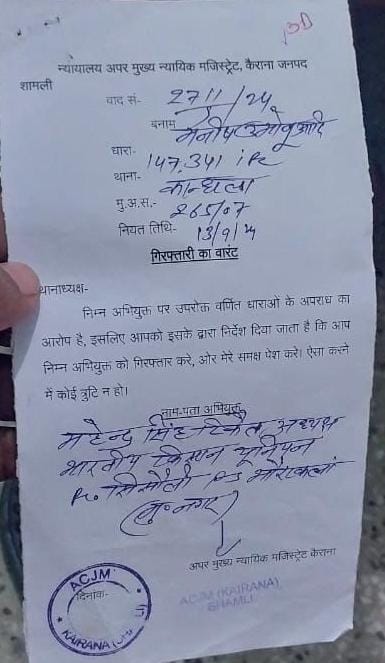 न्यायालय अपर मुख्य न्यायिक मजिस्ट्रेट, कैराना जनपद
शामली
वाद सं- 2711/24
बनाम
मनीष उ मोनू आदि
धारा- 147,341 iPC
थाना- कान्धला
मु.अ.स.- 265/07
नियत तिथि- 13/9/24
गिरफ्तारी का वारंट
थानाध्यक्ष-
निम्न अभियुक्त पर उपरोक्त वर्णित धाराओ के अपराध का
आरोप है, इसलिए आपको इसके द्वारा निर्देश दिया जाता है कि आप
निम्न अभियुक्त को गिरफ्तार करे, ओर मेरे समक्ष पेश करे। ऐसा करने
में कोई त्रुटि न हो।
नाम-पता अभियुक्त
महेन्द्र सिंह टिकैत अध्यक्ष
भारतीय किसान यूनियन
R/o सिसौली PS भौराकलां
(मु० नगर)
अपर मुख्य न्यायिक मजिस्ट्रेट कैराना
दिनांक-
ACJM
KAIRANA
ACJM (KAIRANA)
SHAMLI